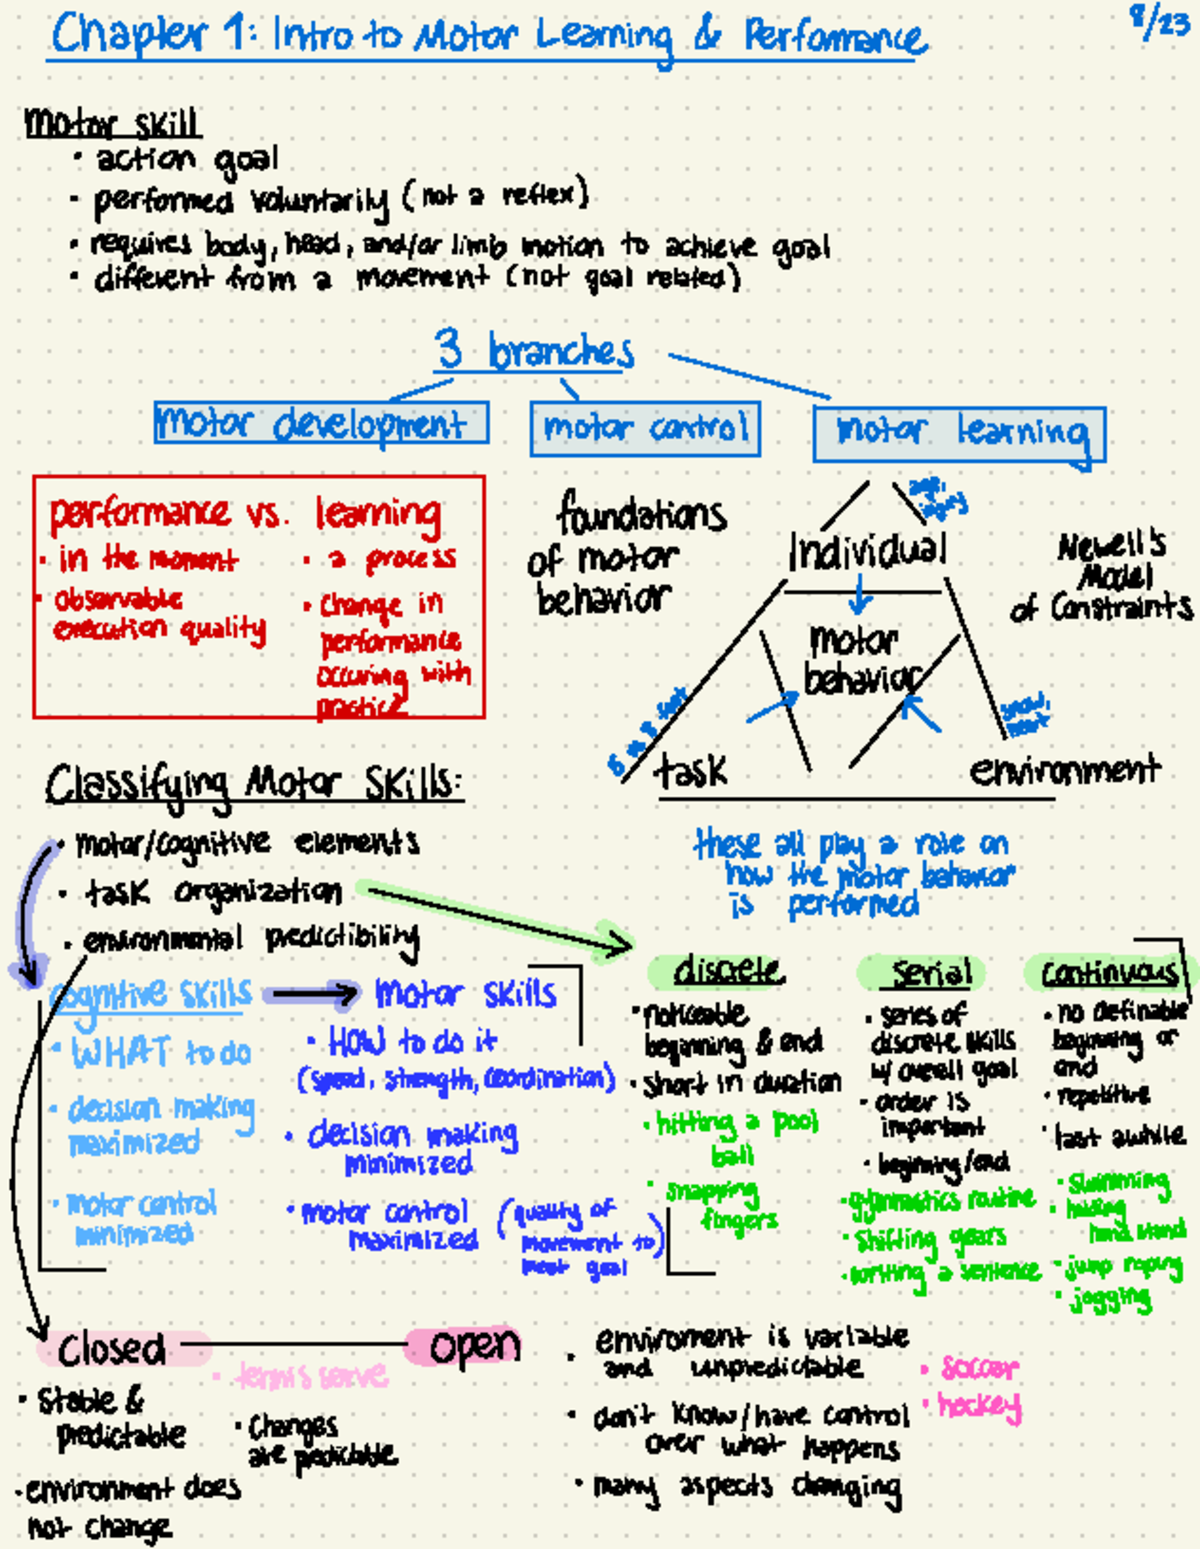 Chapter 1: Intro to Motor Learning & Performance
8/23
Motor skill
• action goal
• performed voluntarily (not a reflex)
• requires body, head, and/or limb motion to achieve goal
• different from a movement (not goal related)
3 branches
motor development
motor control
motor learning
performance vs. learning
• in the moment
• observable
execution quality
• a process
• change in
performance
occuring with
practice
foundations
of motor
behavior
age,
injury
Individual
Newell's
Model
of Constraints
motor
behavior
task
environment
these all play a role on
how the motor behavior
is performed
Classifying Motor Skills:
• motor/cognitive elements
• task organization
• environmental predictibility
cognitive skills
• WHAT to do
• decision making
maximized
• motor control
minimized
motor skills
• HOW to do it
(speed, strength, coordination)
• decision making
minimized
• motor control
maximized
(quality of
movement to)
meet goal
discrete
• noticeable
beginning & end
• short in duration
• hitting a pool
ball
• snapping
fingers
serial
• series of
discrete skills
w/ overall goal
• order is
important
• beginning/end
• gymnastics routine
• shifting gears
• writing a sentence
continuous
• no definable
beginning or
end
• repetitive
• last awhile
• swimming
• holding
hand stand
• jump roping
• jogging
Closed
open
• tennis serve
• stable &
predictable
• changes
are predictable
• environment does
not change
• enviroment is variable
and unpredictable
• don't know/have control
over what happens
• many aspects changing
• soccer
• hockey